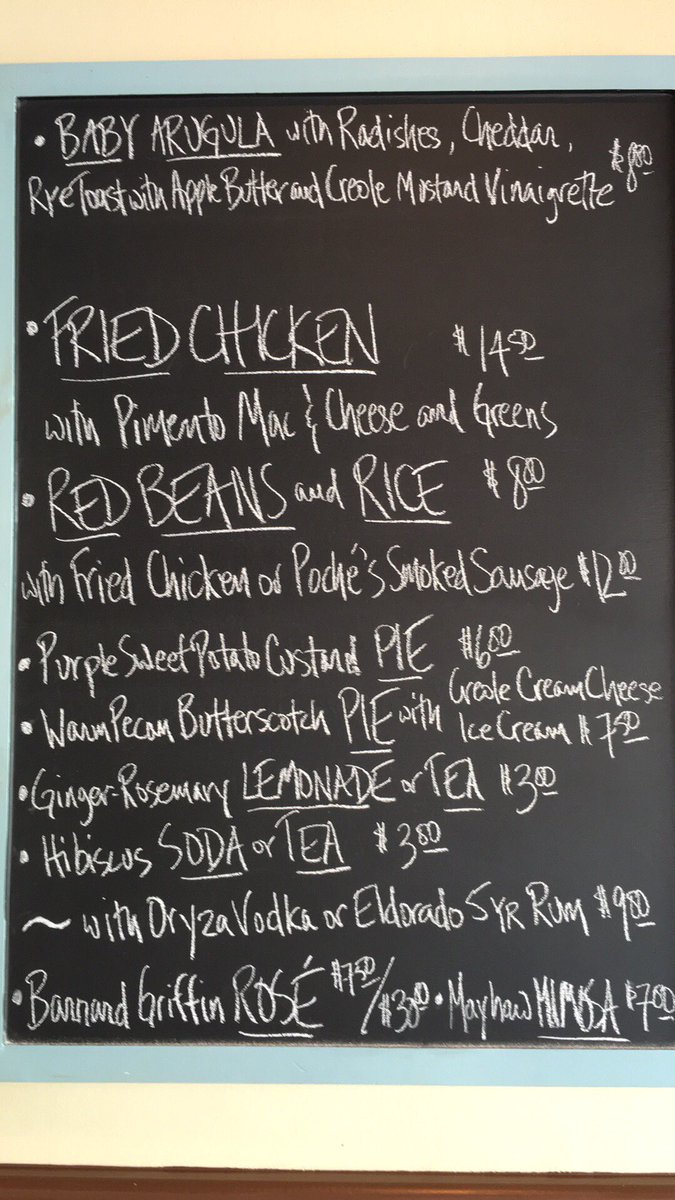 • BABY ARUGULA with Radishes, Cheddar,
Rye Toast with Apple Butter and Creole Mustard Vinaigrette $8.00
• FRIED CHICKEN $14.50
with Pimento Mac & Cheese and Greens
• RED BEANS and RICE $8.00
with Fried Chicken or Poché's Smoked Sausage $12.00
• Purple Sweet Potato Custard PIE $6.00
• Warm Pecan Butterscotch PIE with Creole Cream Cheese
Ice Cream $7.50
• Ginger-Rosemary LEMONADE or TEA $3.00
• Hibiscus SODA or TEA $3.00
~ with Oryza Vodka or Eldorado 5 YR Rum $9.00
• Barnard Griffin ROSÉ $7.50/$30.00 • Mayhaw MIMOSA $7.00